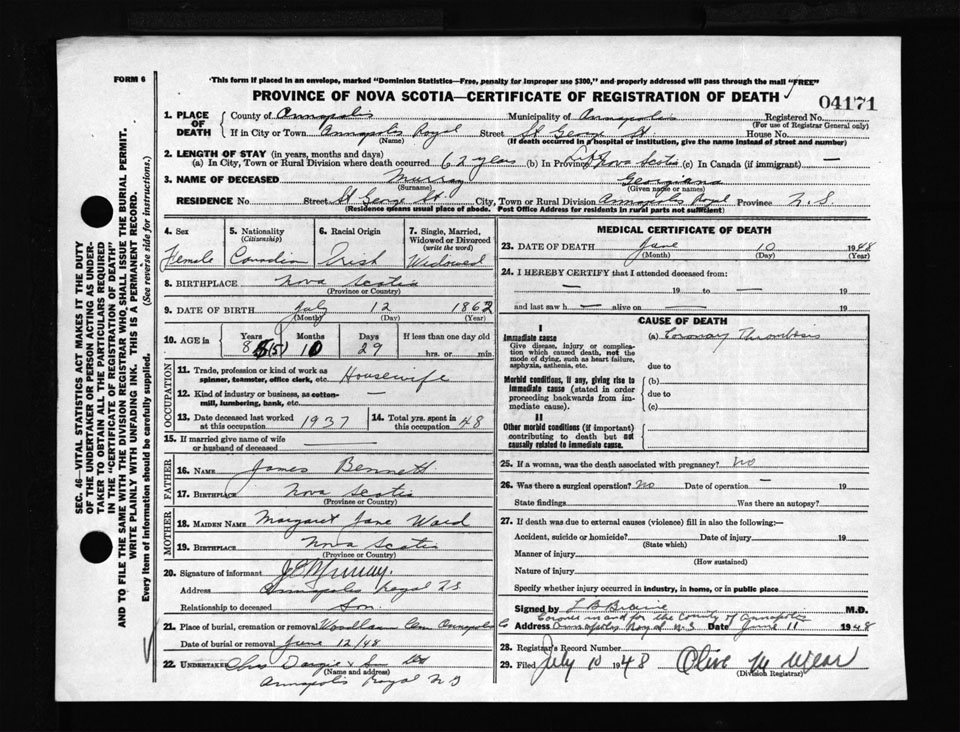 FORM 6
"This form if placed in an envelope, marked "Dominion Statistics—Free, penalty for improper use $300," and properly addressed will pass through the mail "FREE"
PROVINCE OF NOVA SCOTIA—CERTIFICATE OF REGISTRATION OF DEATH
04171
1. PLACE OF DEATH
County of Annapolis Municipality of Annapolis Registered No.
(For use of Registrar General only)
If in City or Town Annapolis Royal Street St George St House No.
(Name) (If death occurred in a hospital or institution, give the name instead of street and number)
2. LENGTH OF STAY (in years, months and days)
(a) In City, Town or Rural Division where death occurred 62 years (b) In Province Life Nova Scotia (c) In Canada (if immigrant) —
3. NAME OF DECEASED Murray Georgiana
(Surname) (Given name or names)
RESIDENCE No. Street St George St. City, Town or Rural Division Annapolis Royal Province N.S.
(Residence means usual place of abode. Post Office Address for residents in rural parts not sufficient)
4. Sex
Female
5. Nationality
(Citizenship)
Canadian
6. Racial Origin
Irish
7. Single, Married, Widowed or Divorced
(write the word)
Widowed
8. BIRTHPLACE Nova Scotia
(Province or Country)
9. DATE OF BIRTH July 12 1862
(Month) (Day) (Year)
10. AGE in
Years Months Days If less than one day old
8 (5) 10 29 hrs. or min.
OCCUPATION
11. Trade, profession or kind of work as spinner, teamster, office clerk, etc. Housewife
12. Kind of industry or business, as cotton-mill, lumbering, bank, etc.
13. Date deceased last worked at this occupation 1937
14. Total yrs. spent in this occupation 48
15. If married give name of wife or husband of deceased
FATHER
16. NAME James Bennett
17. BIRTHPLACE Nova Scotia
(Province or Country)
MOTHER
18. MAIDEN NAME Margaret Jane Ward
19. BIRTHPLACE Nova Scotia
(Province or Country)
20. Signature of informant Murray.
Address Annapolis Royal N.S
Relationship to deceased Son.
21. Place of burial, cremation or removal Woodlawn Cem Annapolis Co
Date of burial or removal June 12/48
22. UNDERTAKER Dargie & Son Ltd
(Name and address)
Annapolis Royal N S
MEDICAL CERTIFICATE OF DEATH
23. DATE OF DEATH June 10 1948
(Month) (Day) (Year)
24. I HEREBY CERTIFY that I attended deceased from:
— 19 to — 19
and last saw h — alive on — 19
CAUSE OF DEATH
I
Immediate cause
Give disease, injury or complication which caused death, not the mode of dying, such as heart failure, asphyxia, asthenia, etc.
(a) Coronary Thrombosis
due to
Morbid conditions, if any, giving rise to immediate cause (stated in order proceeding backwards from immediate cause).
(b)
due to
(c)
II
Other morbid conditions (if important) contributing to death but not causally related to immediate cause.
25. If a woman, was the death associated with pregnancy? No
26. Was there a surgical operation? No Date of operation —
State findings Was there an autopsy?
27. If death was due to external causes (violence) fill in also the following:—
Accident, suicide or homicide? Date of injury 19
(State which)
Manner of injury
(How sustained)
Nature of injury
Specify whether injury occurred in industry, in home, or in public place
Signed by L B Braine M.D.
Coroner in and for the County of Annapolis
Address Annapolis Royal N.S Date June 11 1948
28. Registrar's Record Number
29. Filed July 10 1948 Olive M Wear
(Division Registrar)
SEC. 46—VITAL STATISTICS ACT MAKES IT THE DUTY
OF THE UNDERTAKER OR PERSON ACTING AS UNDER-
TAKER TO OBTAIN ALL THE PARTICULARS REQUIRED
IN THE "CERTIFICATE OF REGISTRATION OF DEATH"
AND TO FILE THE SAME WITH THE DIVISION REGISTRAR WHO, SHALL ISSUE THE BURIAL PERMIT.
WRITE PLAINLY WITH UNFADING INK. THIS IS A PERMANENT RECORD.
Every item of information should be carefully supplied. (See reverse side for instructions.)